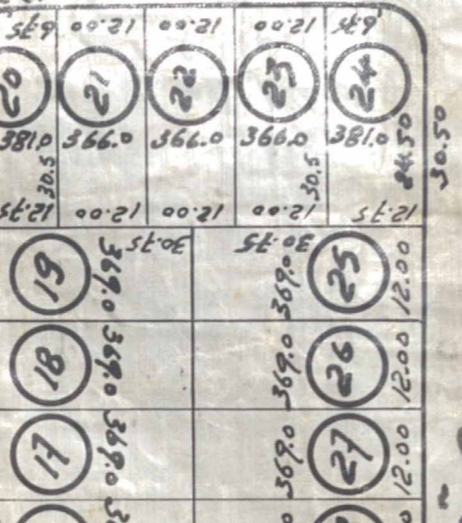 6.75 12.00 12.00 12.00 6.75
20 21 22 23 24
381.0 366.0 366.0 366.0 381.0
30.5 30.5 24.50 30.50
12.75 12.00 12.00 12.00 12.75
30.75 30.75
19 369.0 369.0 25 12.00
18 369.0 369.0 26 12.00
17 369.0 369.0 27 12.00